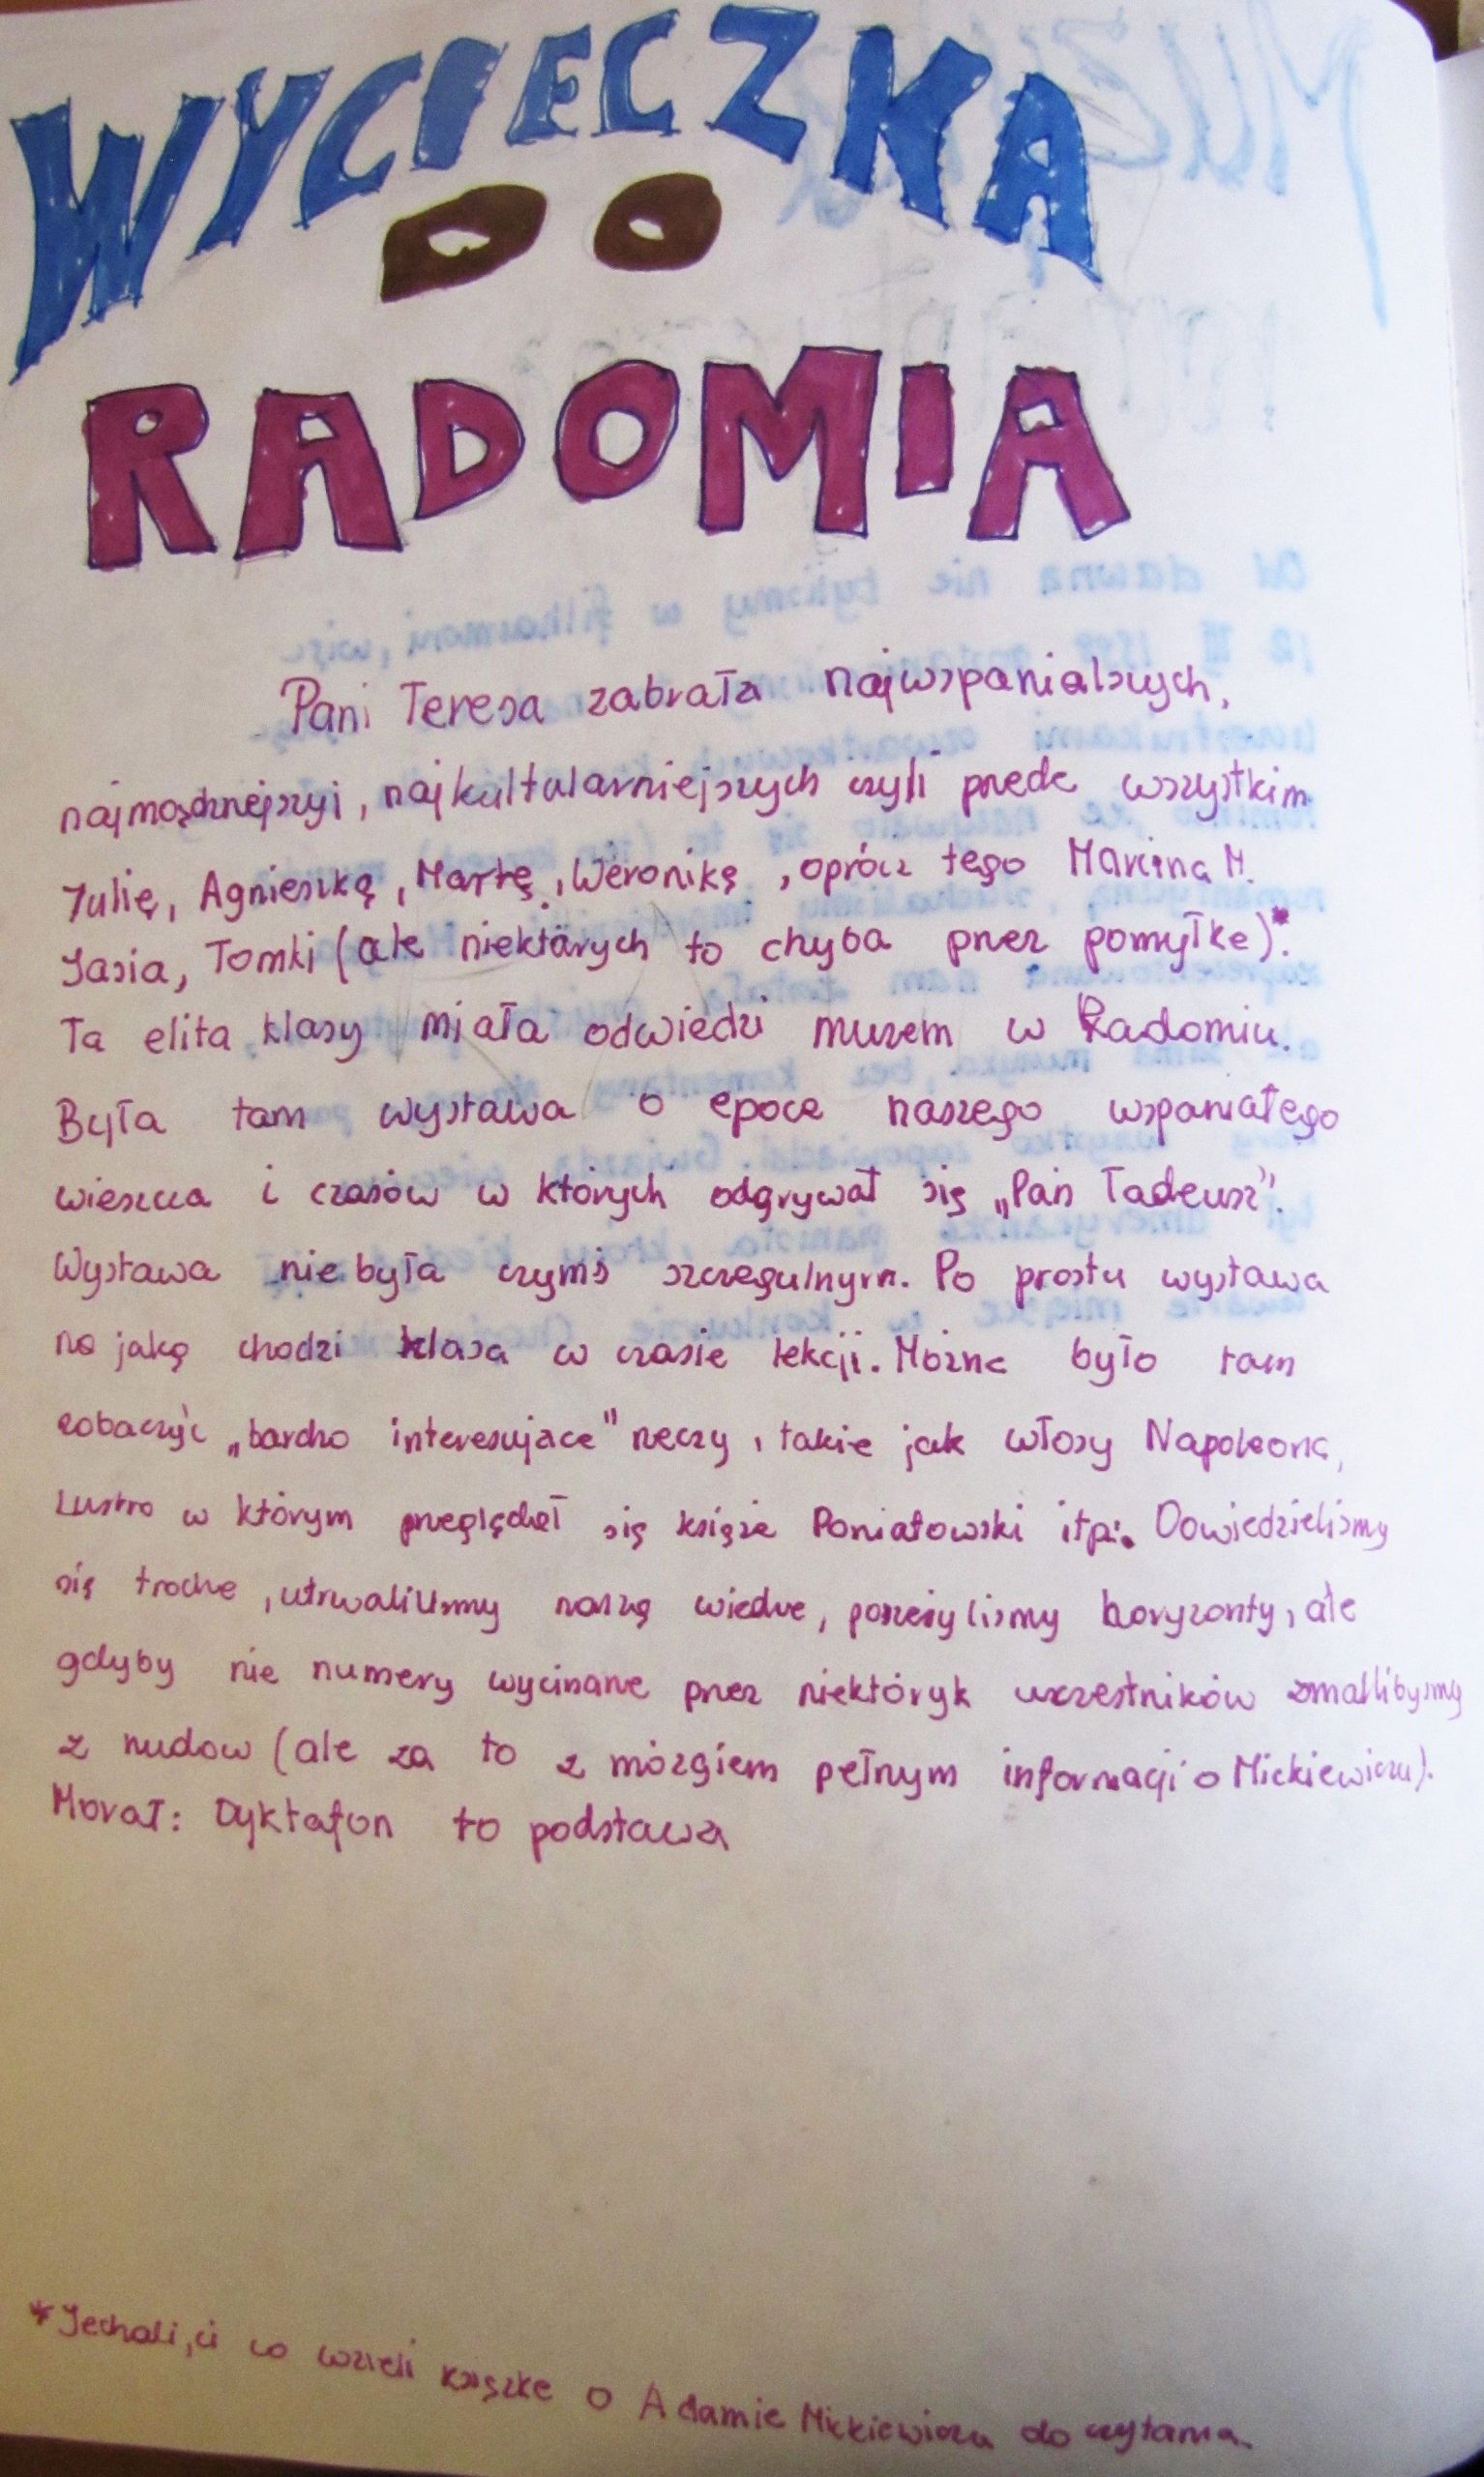 WYCIECZKA
DO
RADOMIA
Pani Teresa zabrała najwspanialszych,
najmądrzejszyi, najkultularniejszych czyli przede wszystkim
Julię, Agnieszkę, Martę, Weronikę, oprócz tego Marcina M.
Jasia, Tomki (ale niektórych to chyba przez pomyłke)*.
Ta elita klasy miała odwiedzi muzem w Radomiu.
Była tam wystawa o epoce naszego wspaniałego
wieszcza i czasów w których odgrywał się „Pan Tadeusz".
Wystawa nie była czymś szczegulnym. Po prostu wystawa
na jaką chodzi klasa w czasie lekcji. Można było tam
zobaczyć „bardzo interesujace" rzeczy, takie jak włosy Napoleona,
Lustro w którym przeglądał się książe Poniatowski itp. Dowiedzieliśmy
się troche, utrwaliliśmy naszą wiedze, poszeżyliśmy horyzonty, ale
gdyby nie numery wycinane przez niektóryk uczestników zmarlibyśmy
z nudow (ale za to z mózgiem pełnym informacji o Mickiewiczu).
Morał: Dyktafon to podstawa
*Jechali, ci co wzieli książke o Adamie Mickiewiczu do czytania.